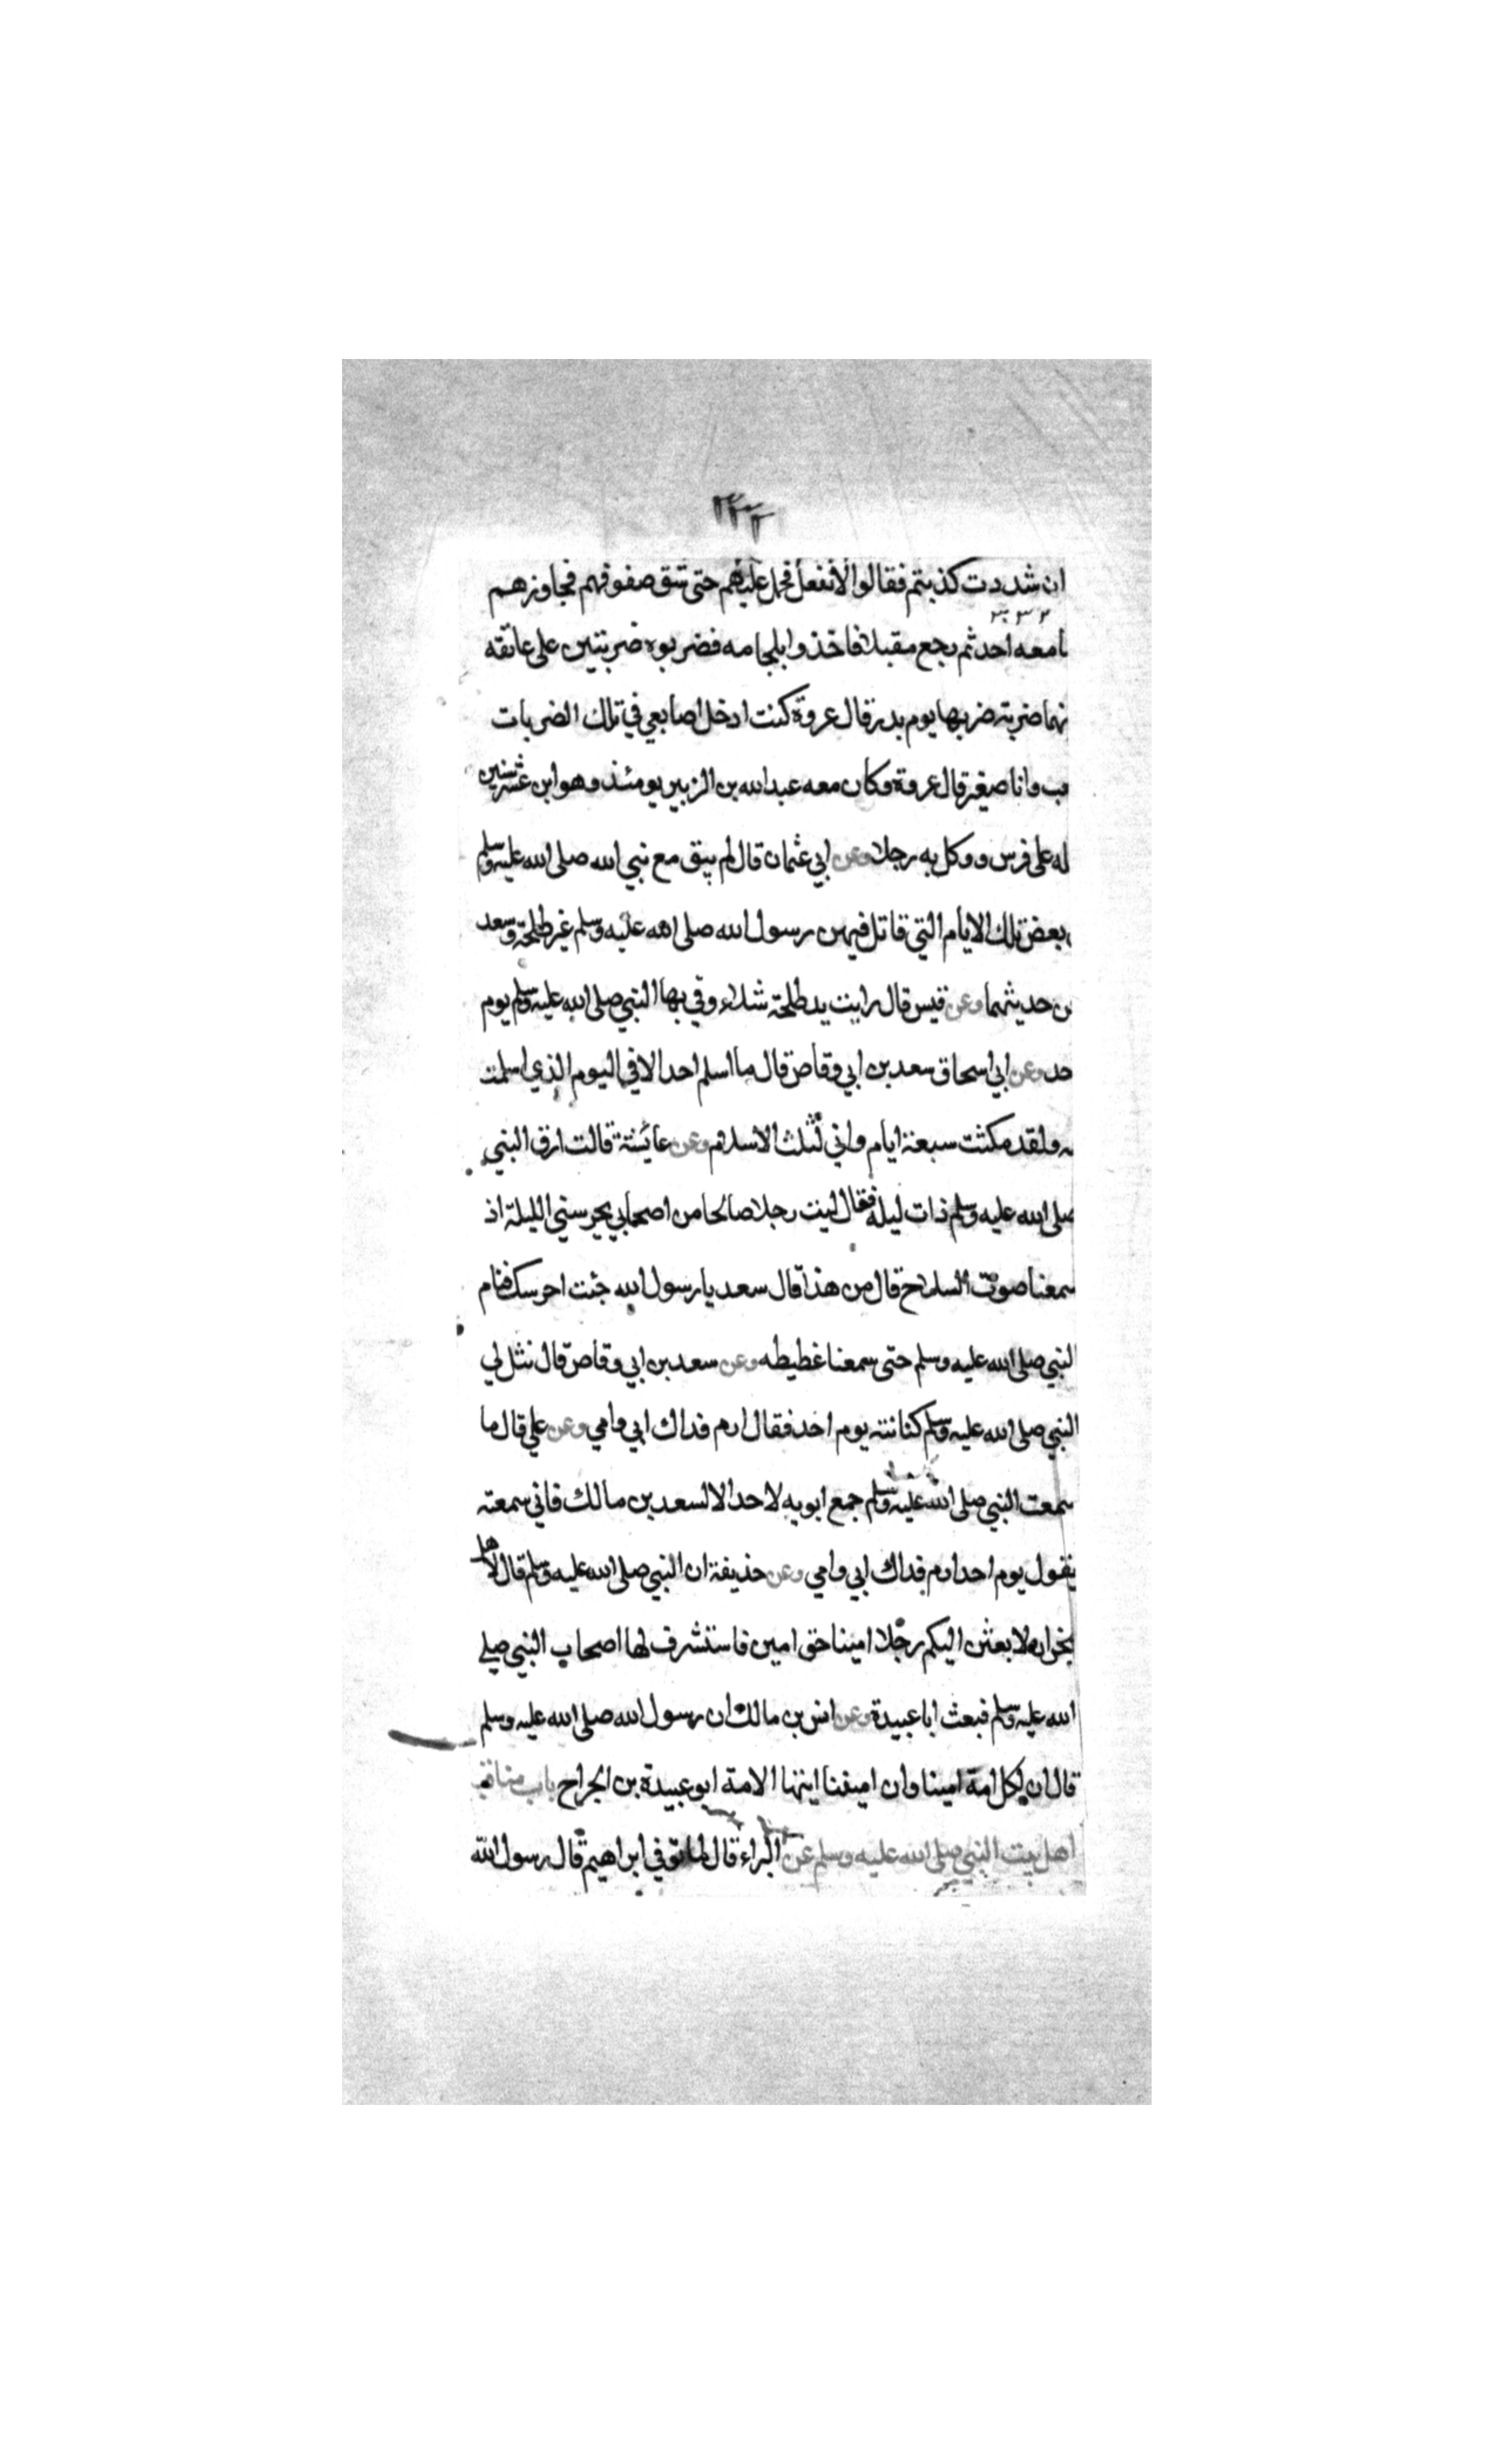 ٢٣٢
ان شددت كذبتم فقالوا لا نفعل فحمل عليهم حتى شق صفوفهم فجاوزهم
٢٣٢
امعه احد ثم رجع مقبلا فاخذوا بلجامه فضربوه ضربتين على عاتقه
نهما ضربة ضربها يوم بدر قال عروة كنت ادخل اصابعي في تلك الضربات
عب وانا صغير قال عروة وكان معه عبد الله بن الزبير يومئذ وهو ابن عشر سنين
له على فرس ووكل به رجلا وعن ابي عثمان قال لم يبق مع نبي الله صلى الله عليه وسلم
بعض تلك الايام التي قاتل فيهن رسول الله صلى الله عليه وسلم غير طلحة وسعد
ن حديثهما وعن قيس قال رايت يد طلحة شلاء وقي بها النبي صلى الله عليه وسلم يوم
حد وعن ابي اسحاق سعد بن ابي وقاص قال ما اسلم احد الا في اليوم الذي اسلمت
ه ولقد مكثت سبعة ايام واني لثلث الاسلام وعن عائشة قالت ارق النبي
صلى الله عليه وسلم ذات ليلة فقال ليت رجلا صالحا من اصحابي يحرسني الليلة اذ
سمعنا صوت السلاح قال من هذا قال سعد يا رسول الله جئت احرسك فنام
النبي صلى الله عليه وسلم حتى سمعنا غطيطه وعن سعد بن ابي وقاص قال نثل لي
النبي صلى الله عليه وسلم كنانته يوم احد فقال ارم فداك ابي وامي وعن علي قال ما
سمعت النبي صلى الله عليه وسلم جمع ابويه لاحد الا لسعد بن مالك فاني سمعته
يقول يوم احد ارم فداك ابي وامي وعن حذيفة ان النبي صلى الله عليه وسلم قال لاهل
نجران لابعثن اليكم رجلا امينا حق امين فاستشرف لها اصحاب النبي صلى
الله عليه وسلم فبعث ابا عبيدة وعن انس بن مالك ان رسول الله صلى الله عليه وسلم
قال ان لكل امة امينا وان اميننا ايتها الامة ابو عبيدة بن الجراح باب مناقب
اهل بيت النبي صلى الله عليه وسلم عن البراء قال لما توفي ابراهيم قال رسول الله